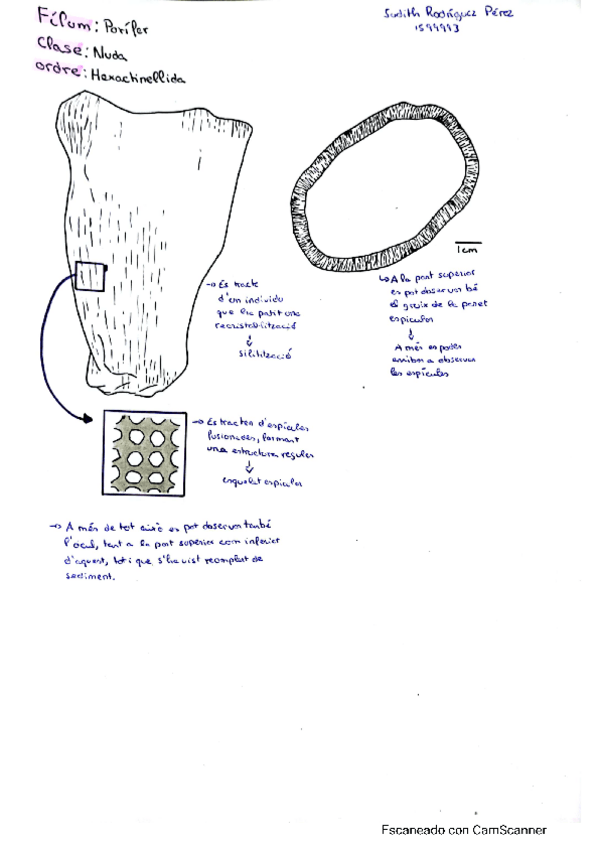 Fílum: Porífer
Judith Rodríguez Pérez
1594993
Clase: Nuda
Ordre: Hexactinellida
1cm
→ Es tracte
d'un individu
que ha patit una
recristal·lització
↓
Sililització
→ A la part superior
es pot observar bé
el groix de la paret
espicular
↓
A més es poden
arribar a observar
les espícules
→ Es tracten d'espícules
fusionades, formant
una estructura regular
↓
esquelet espicular
→ A més de tot això es pot observar també
l'ocul, tant a la part superior com inferior
d'aquest, tot i que s'ha vist reomplert de
sediment.
Escaneado con CamScanner